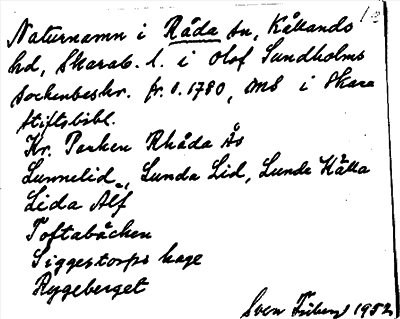 Naturnamn i Råda sn, Kållands
hd, Skarab. l. i Olof Sundholms
sockenbeskr. fr. o. 1780, ms i Skara
stiftsbibl.
Kr. Parken Rhåda Ås
Lunnelid, Lunda Lid, Lunda Källa
Lida Alf
Toftabäcken
Siggestorps hage
Rygeberget
Sven Friberg 1952